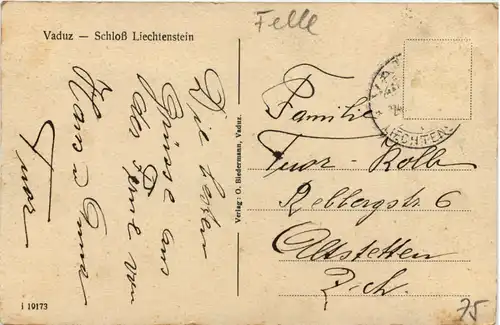 Vaduz — Schloß Liechtenstein
Felle
Die besten
Grüsse aus
der Ferne von
Hans & Emma
Furr
Verlag: O. Biedermann, Vaduz.
LIECHTEN
Familie
Furr - Kolb
Rebbergstr 6
Altstetten
Zch.
i 19173
75